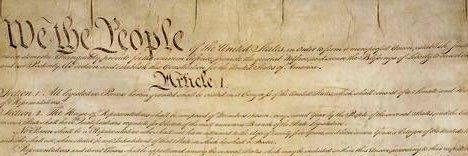 We the People of the United States, in Order to form a more perfect Union, establish Justice,
insure domestic Tranquility, provide for the common defence, promote the general Welfare, and secure the Blessings of Liberty to ourselves
and our Posterity, do ordain and establish this Constitution for the United States of America.
Article. I.
Section. 1. All legislative Powers herein granted shall be vested in a Congress of the United States, which shall consist of a Senate and House
of Representatives.
Section. 2. The House of Representatives shall be composed of Members chosen every second Year by the People of the several States, and the
No Person shall be a Representative who shall not have attained to the Age of twenty five Years, and been seven Years a Citizen of the United States,
and who shall not, when elected, be an Inhabitant of that State in which he shall be chosen.
Representatives and direct Taxes shall be apportioned among the several States which may be included within this Union,